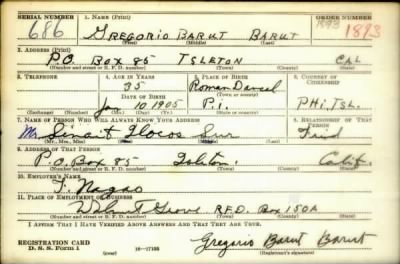 SERIAL NUMBER 1. NAME (Print) ORDER NUMBER
686 GREGORIO BARUT BARUT 1893
(First) (Middle) (Last)
2. ADDRESS (Print)
P.O. BOX 85 ISLETON CAL
(Number and street or R. F. D. number) (Town) (County) (State)
3. TELEPHONE 4. AGE IN YEARS 5. PLACE OF BIRTH 6. COUNTRY OF CITIZENSHIP
35
DATE OF BIRTH (Town or county)
Jan 10 1905 P.i. PHi. ISL.
(Exchange) (Number) (Mo.) (Day) (Yr.) (State or country)
7. NAME OF PERSON WHO WILL ALWAYS KNOW YOUR ADDRESS 8. RELATIONSHIP OF THAT PERSON
Mr. Sinait Ilocos Sur
(Mr., Mrs., Miss) (First) (Middle) (Last)
9. ADDRESS OF THAT PERSON
P.O. Box 85 Isleton. Calif.
(Number and street or R. F. D. number) (Town) (County) (State)
10. EMPLOYER'S NAME
T. Nagao
11. PLACE OF EMPLOYMENT OR BUSINESS
Walnut Grove R.F.D. Box 150A
(Number and street or R. F. D. number) (Town) (County) (State)
I AFFIRM THAT I HAVE VERIFIED ABOVE ANSWERS AND THAT THEY ARE TRUE.
REGISTRATION CARD
D. S. S. Form 1 16—17105 Gregorio Barut Barut